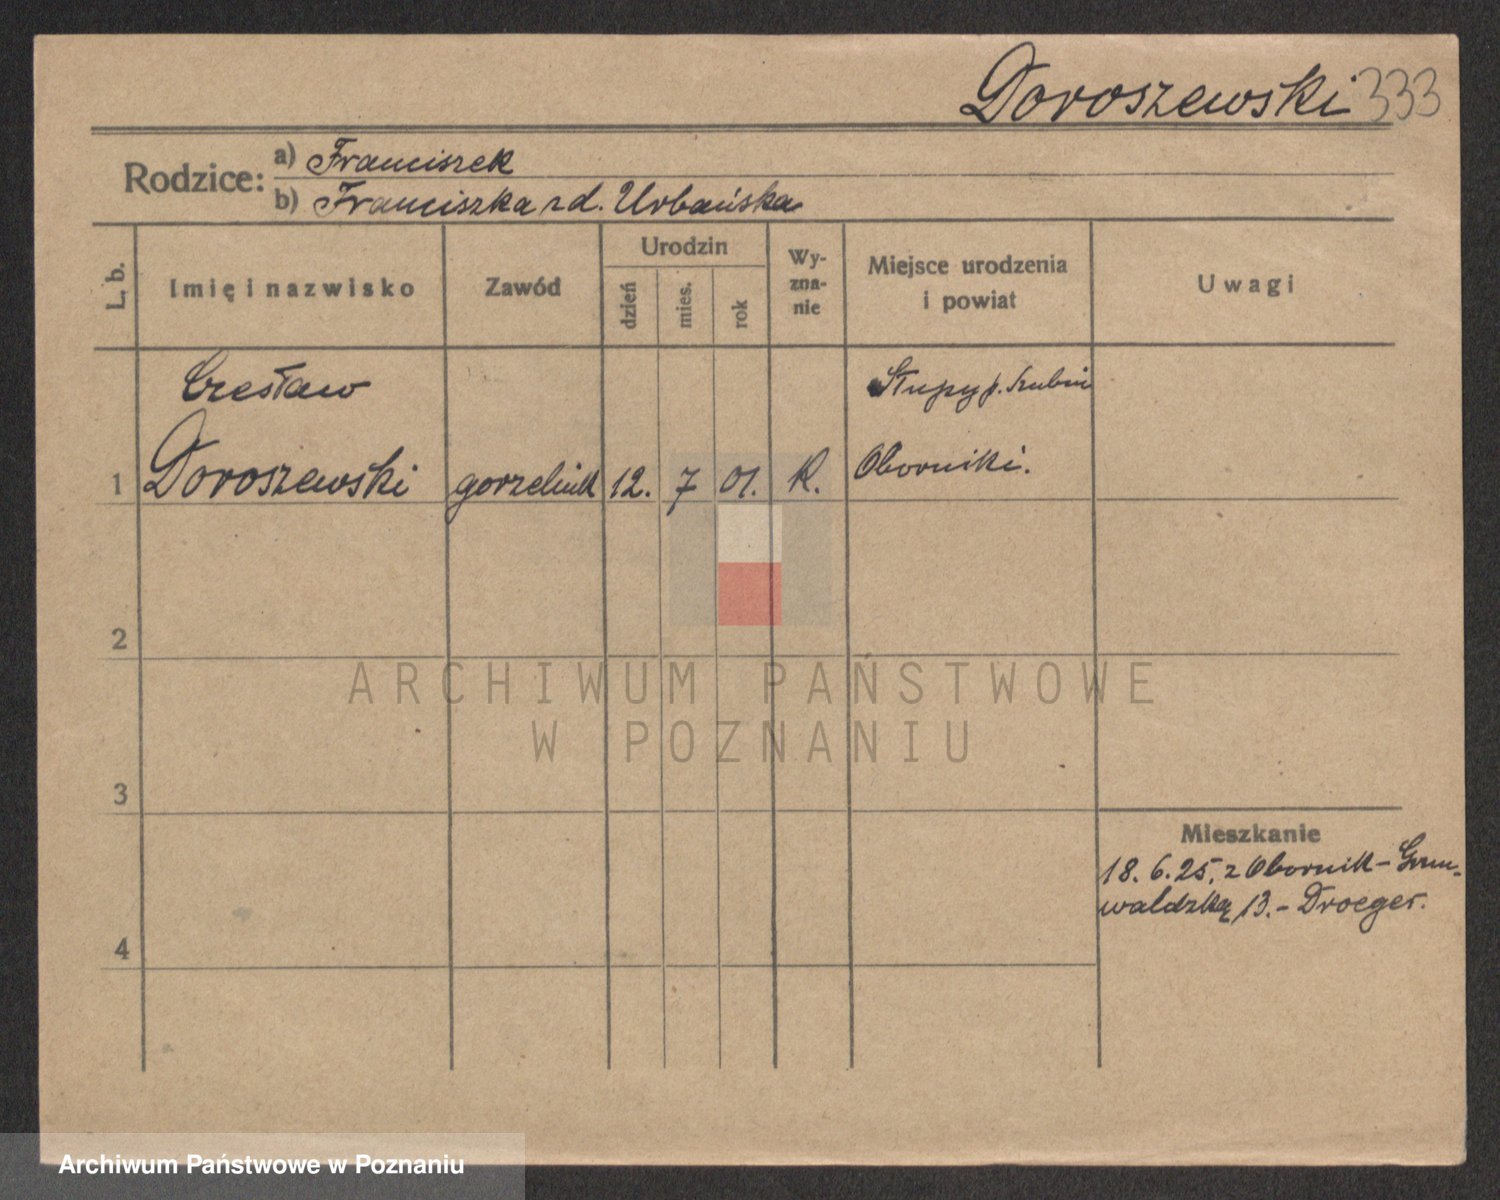 Doroszewski 333
Rodzice:
a) Franciszek
b) Franciszka zd. Urbańska
L. b.
Imię i nazwisko
Zawód
Urodzin
dzień
mies.
rok
Wy-
zna-
nie
Miejsce urodzenia
i powiat
Uwagi
Czesław
Słupy p. Szubin
1 Doroszewski gorzelnik 12. 7 01. K. Oborniki.
2
3
4
Mieszkanie
18. 6. 25. z Obornik - Grun-
waldzką 13. - Droeger.
ARCHIWUM PAŃSTWOWE
W POZNANIU
Archiwum Państwowe w Poznaniu